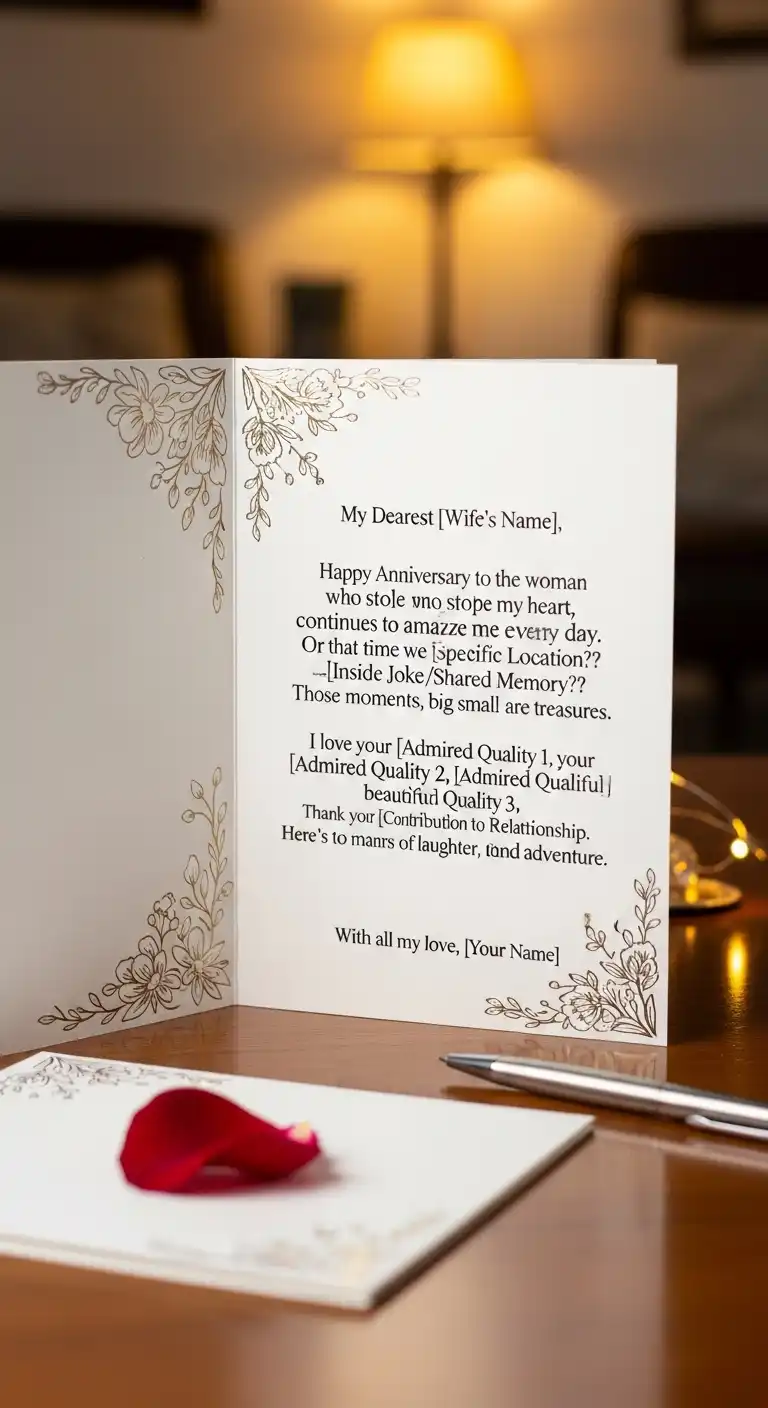 My Dearest [Wife's Name],
Happy Anniversary to the woman
who stole wno stope my heart,
continues to amazze me every day.
Or that time we [specific Location??
–[Inside Joke/Shared Memory??
Those moments, big small are treasures.
I love your [Admired Quality 1, your
[Admired Quality 2, [Admired Qualiful]
beautiful Quality 3,
Thank your [Contribution to Relattionship.
Here's to manrs of laughter, tand adventure.
With all my love, [Your Name]